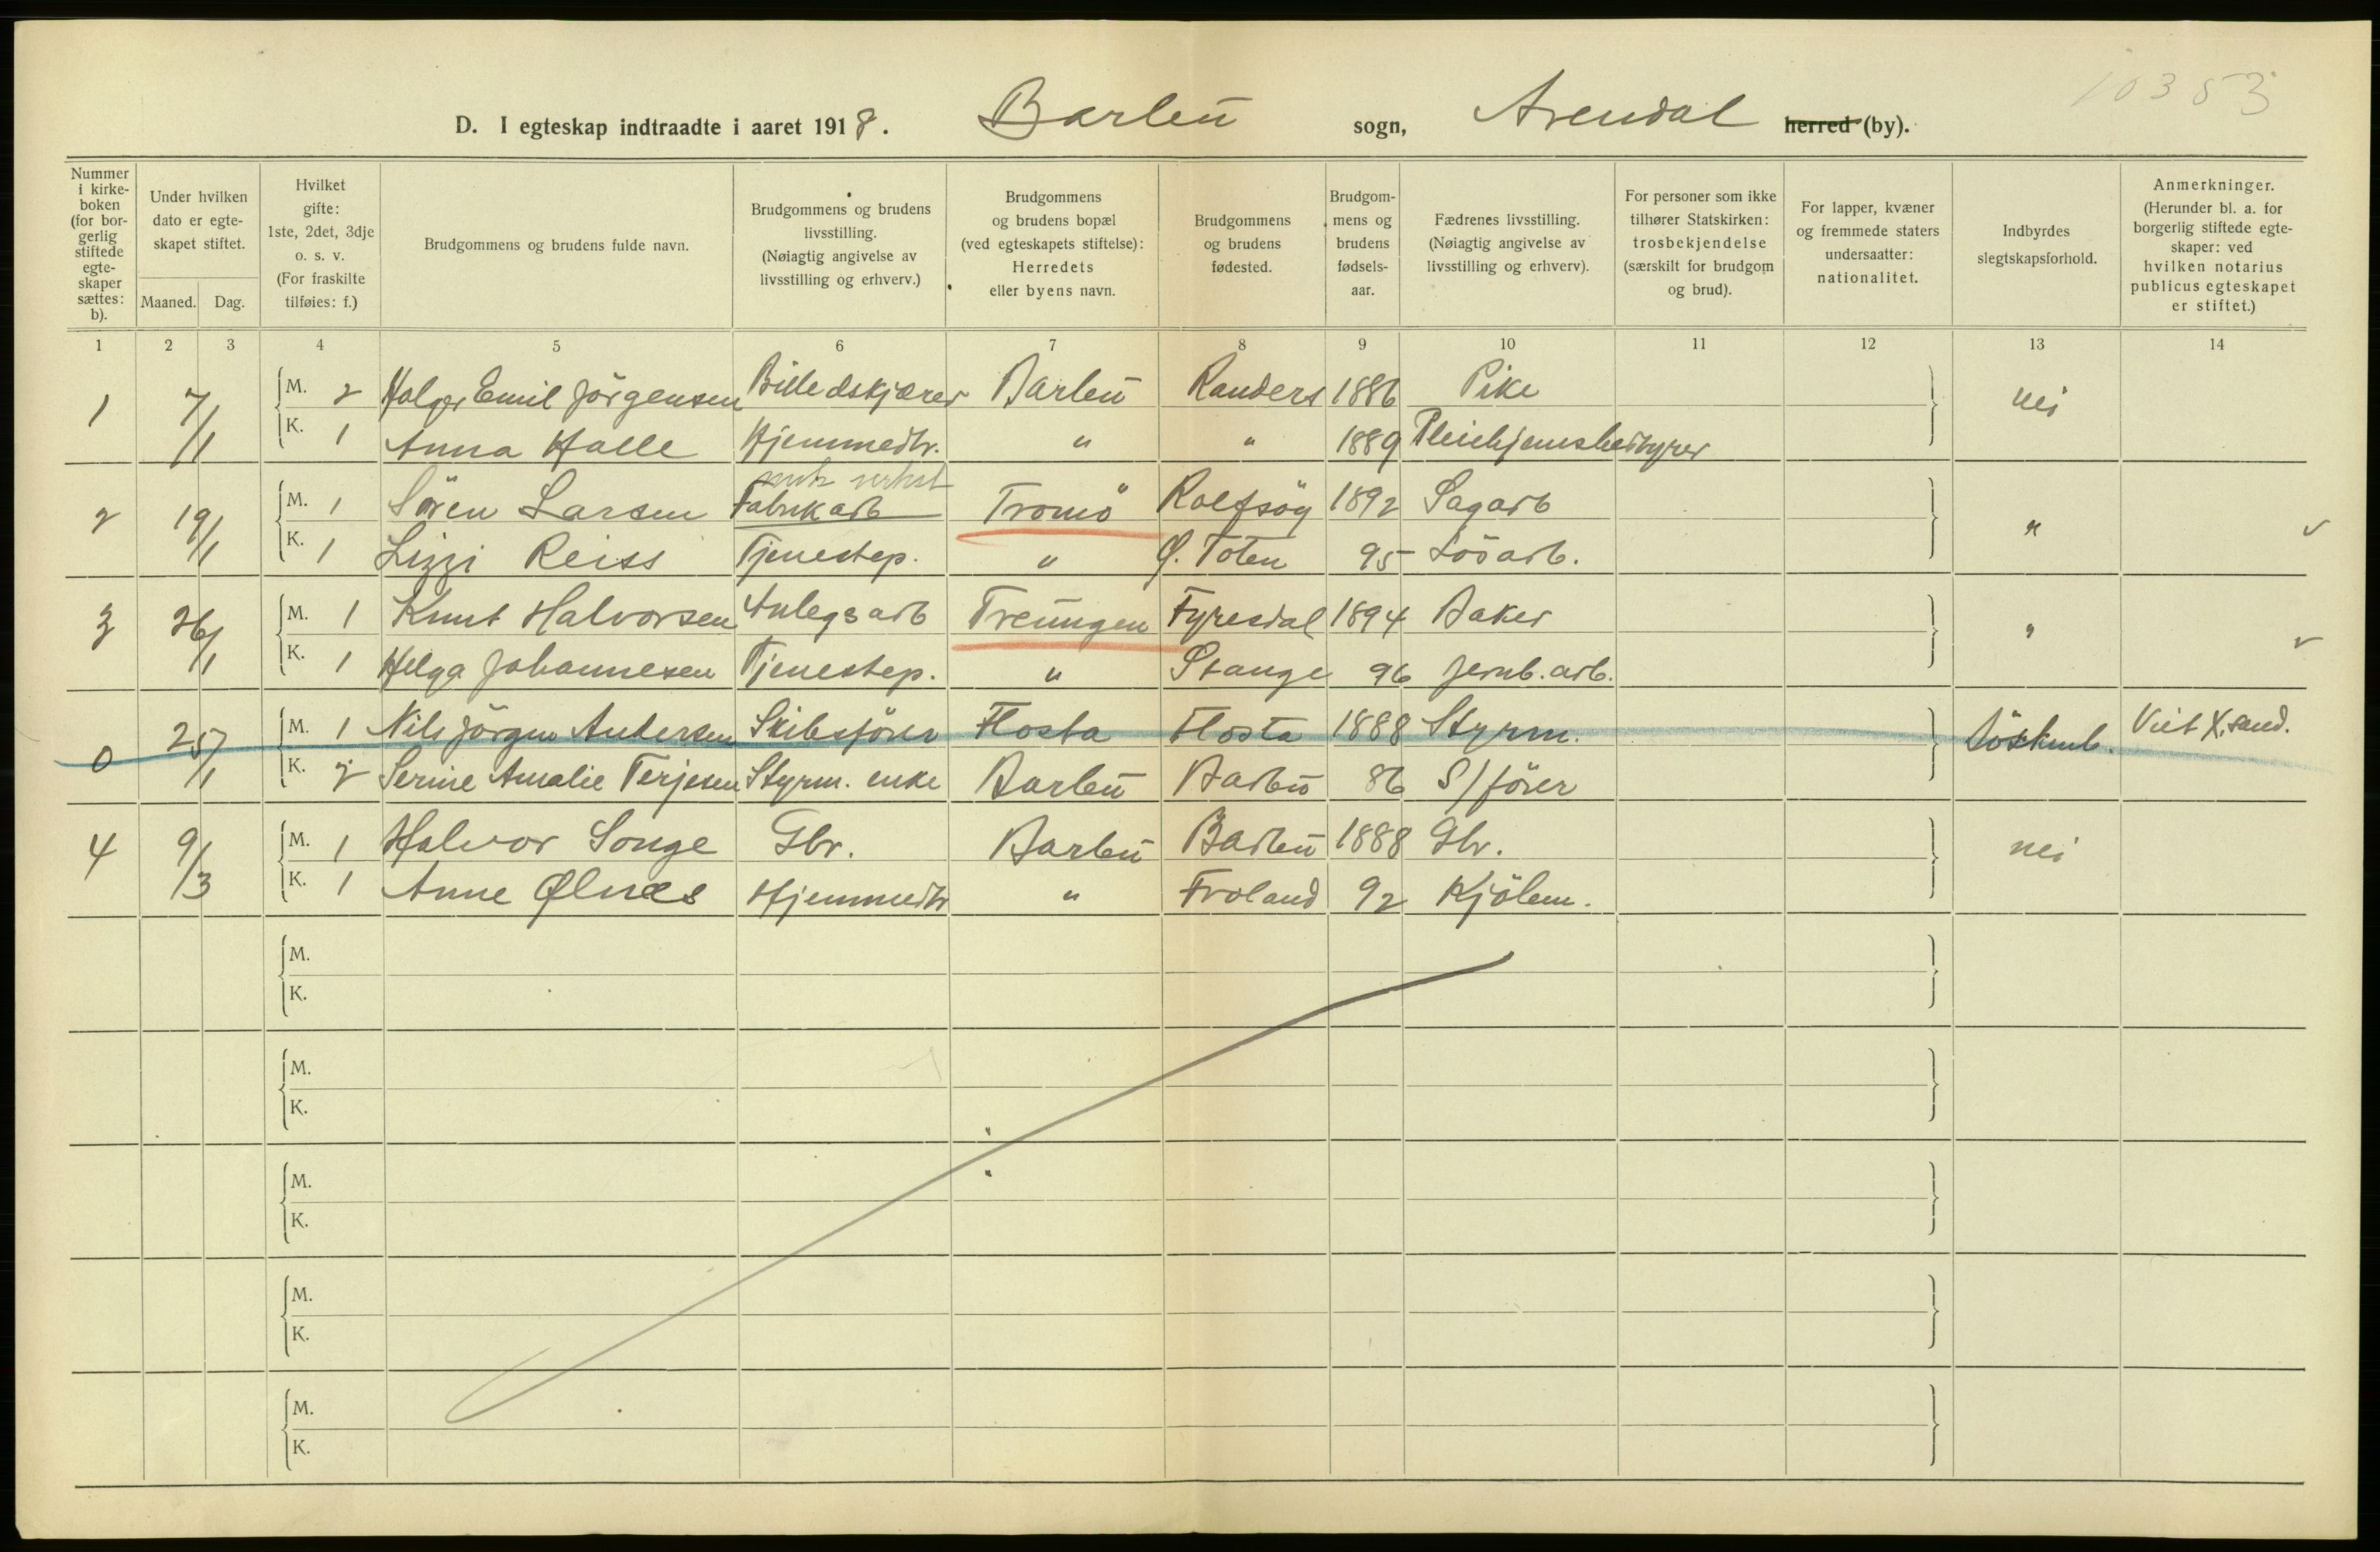 10353
D. I egteskap indtraadte i aaret 1918. Barbu sogn, Arendal herred (by).
Nummer i kirke-boken (for bor-gerlig stiftede egte-skaper sættes: b).
Under hvilken dato er egte-skapet stiftet.
Maaned. Dag.
Hvilket gifte: 1ste, 2det, 3dje o. s. v. (For fraskilte tilføies: f.)
Brudgommens og brudens fulde navn.
Brudgommens og brudens livsstilling. (Nøiagtig angivelse av livsstilling og erhverv.)
Brudgommens og brudens bopæl (ved egteskapets stiftelse): Herredets eller byens navn.
Brudgommens og brudens fødested.
Brudgom-mens og brudens fødsels-aar.
Fædrenes livsstilling. (Nøiagtig angivelse av livsstilling og erhverv).
For personer som ikke tilhører Statskirken: trosbekjendelse (særskilt for brudgom og brud).
For lapper, kvæner og fremmede staters undersaatter: nationalitet.
Indbyrdes slegtskapsforhold.
Anmerkninger. (Herunder bl. a. for borgerlig stiftede egte-skaper: ved hvilken notarius publicus egteskapet er stiftet.)
1 2 3 4 5 6 7 8 9 10 11 12 13 14
1 7/1 M. 2 Holger Emil Jörgensen Billedskjærer Barbu Randers 1886 Pike nei
K. 1 Anna Halle Hjemmedtr. " " 1889 Pleiehjemsbestyrer
2 19/1 M. 1 Sören Larsen Fabrikarb Tromö Rolfsöy 1892 Sagarb "
K. 1 Lizzi Reiss Tjenestep. " Ø. Toten 95 Løsarb.
3 26/1 M. 1 Knut Halvorsen Anlegsarb Treungen Fyresdal 1894 Baker "
K. 1 Helga Johannesen Tjenestep. " Stange 96 Jernb. arb.
0 25/1 M. 1 Nils Jörgen Andersen Skibsförer Flosta Flosta 1888 Styrm. Söskenb. Viet X,sand.
K. 2 Serine Amalie Terjesen Styrm. enke Barbu Barbu 86 S/förer
4 9/3 M. 1 Halvor Songe Gbr. Barbu Barbu 1888 Gbr. nei
K. 1 Anne Ølnes Hjemmedtr " Froland 92 Kjölem.
M.
K.
M.
K.
M.
K.
M.
K.
M.
K.